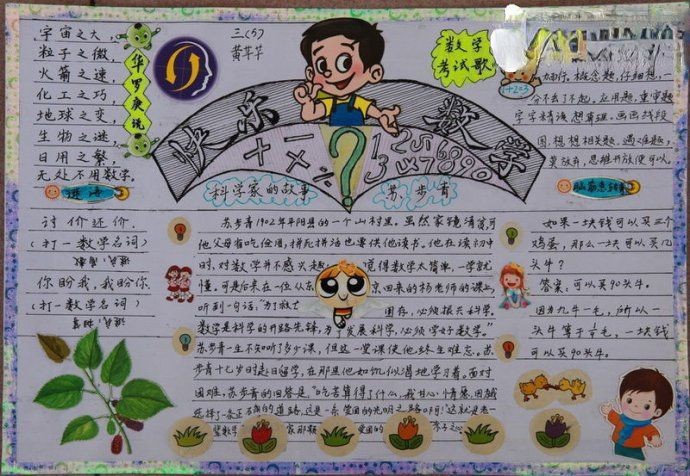 宇宙之大，
粒子之微，
火箭之速，
化工之巧，
地球之变，
生物之谜，
日用之繁，
无处不用数学。
华罗庚说
三(5)
黄芊芊
快乐数学
数学
考试歌
1+2=3
概念题，仔细想，一
分不丢了不起，应用题，重审题
字字精读想前提。画画线段
图，想想相关题。遇难题，
莫放弃，思维开放便可以。
谜语
讨价还价。
(打一数学名词)
你盼我，我盼你
(打一数学名词)
科学家的故事
苏步青
苏步青1902年平阳县的一个山村里。虽然家境清贫，可
他父母省吃俭用，拼死拼活也要供他读书。他在读初中
时，对数学并不感兴趣，觉得数学太简单，一学就
懂。可是后来在一位从东京回来的杨老师的课上，
听到一句话：“为了救亡图存，必须振兴科学。
数学是科学的开路先锋，为了发展科学，必须学好数学。”
苏步青一生不知听了多少课，但这一堂课使他终生难忘。苏
步青十七岁时赴日留学，在那里他如饥似渴地学习着。面对
困难，苏步青的回答是：“吃苦算得了什么，我甘心情愿，因为我
选择了一条正确的道路，这是一条爱国的光明之路啊！”这就是老一
辈数学家那颗爱国的赤子之心
脑筋急转弯
如果一块钱可以买三个
鸡蛋，那么一块可以买几
头牛？
答案：可以买90头牛。
因为九牛一毛，所以一
头牛等于1/9毛，一块钱
可以买90头牛。